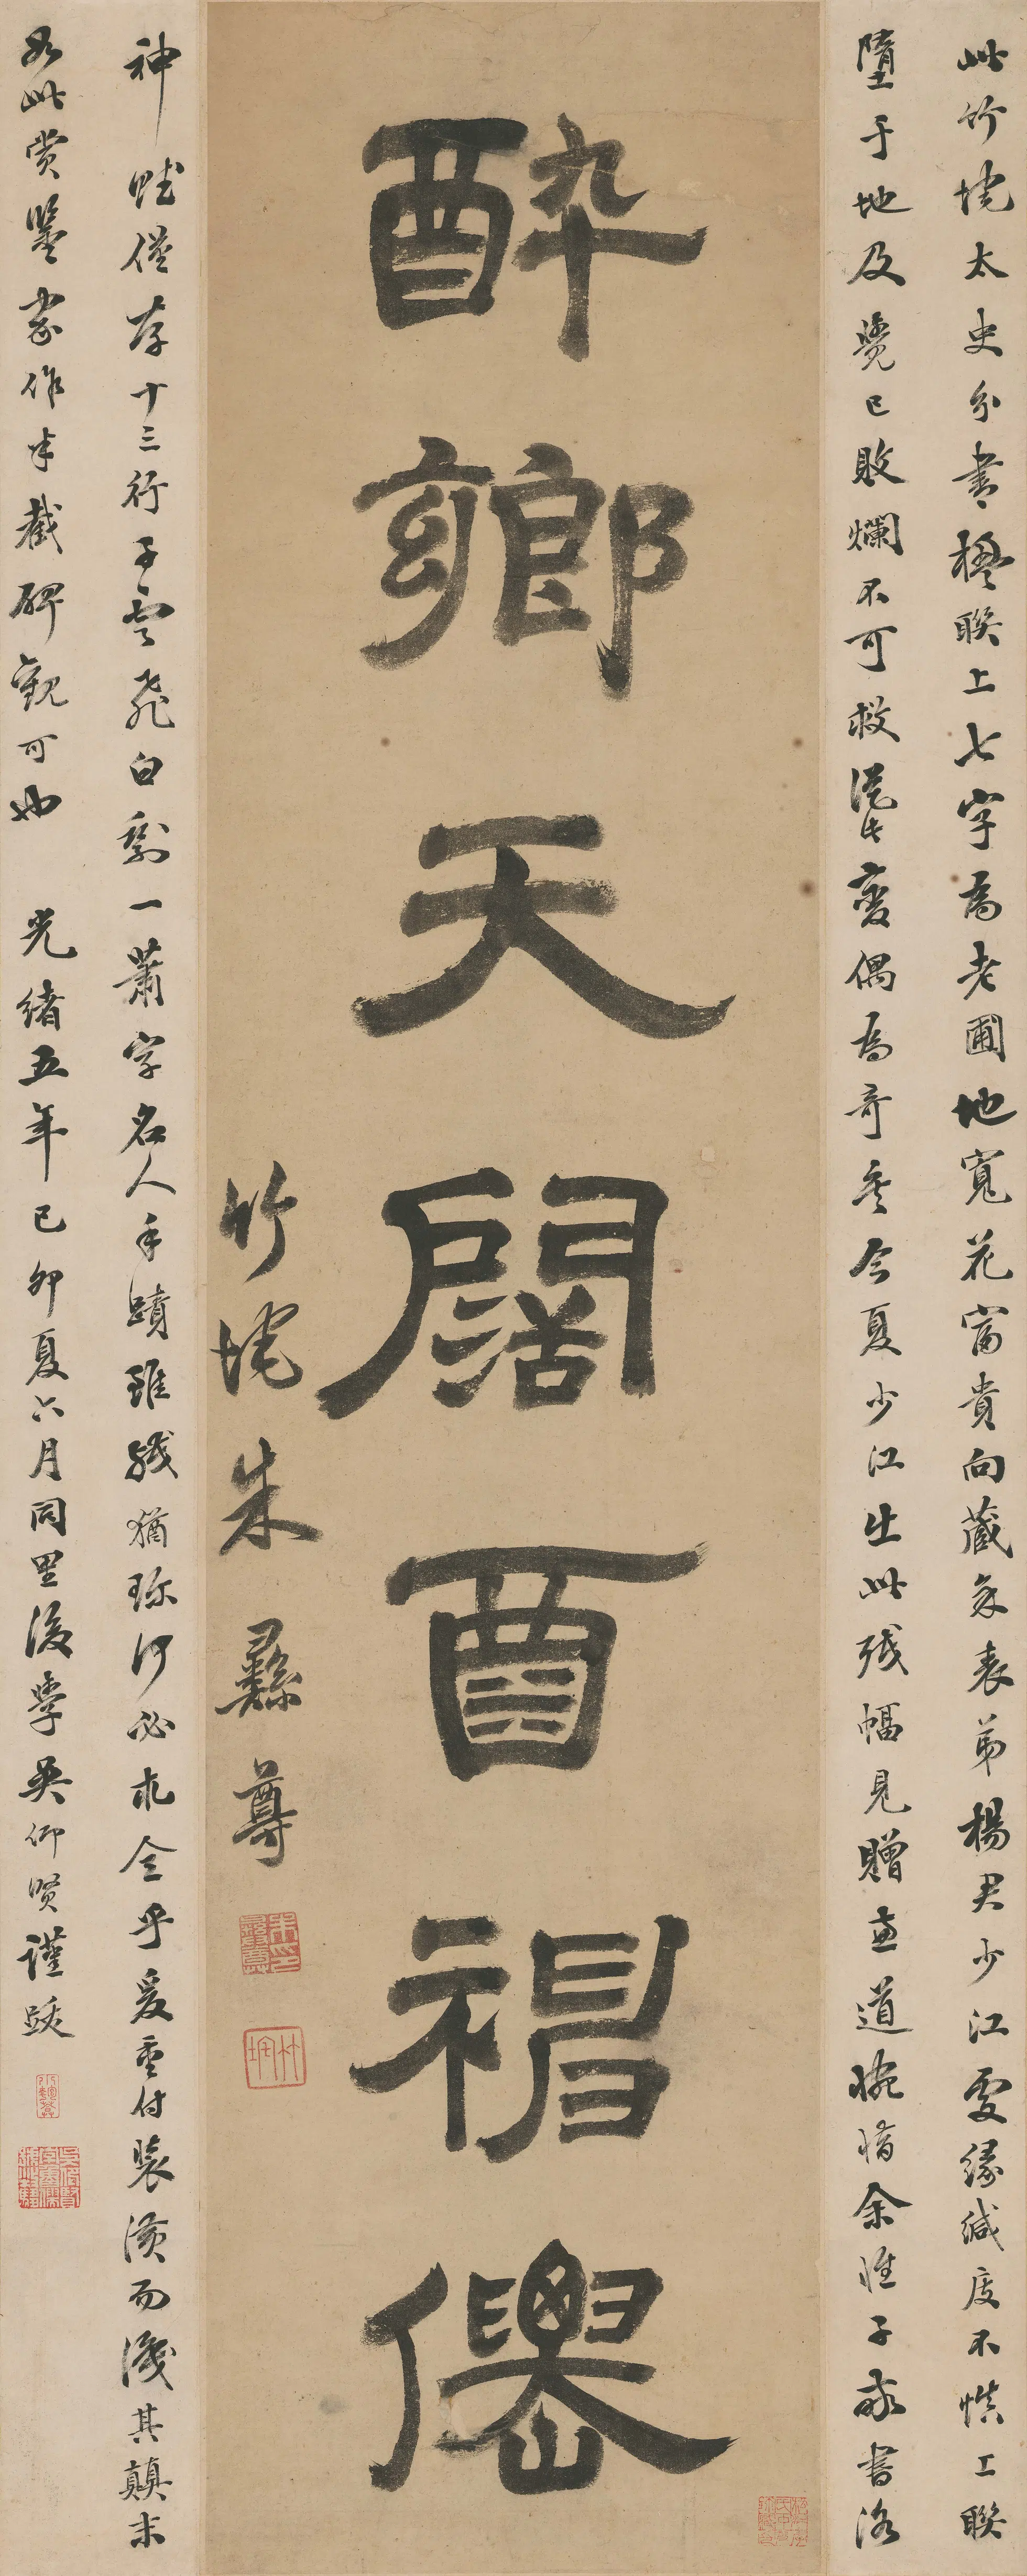 此竹垞太史分書楹聯上七字為老圃地寬花富貴向藏余表弟楊君少江處緣緘庋不慎上聯
墮于地及覺已敗爛不可救從此變偶為奇矣今夏少江出此殘幅見贈並道惋惜余惟子敬書洛
醉鄉天闊酉神僊
竹垞朱彝尊
朱彝尊印
竹垞
神賦僅存十三行子雲飛白剩一蕭字名人手蹟雖殘猶珍何必求全乎爰重付裝潢而識其顛末
如此賞鑒家作半截碑觀可也 光緒五年己卯夏六月同里後學吳仰賢謹跋
小匏菴